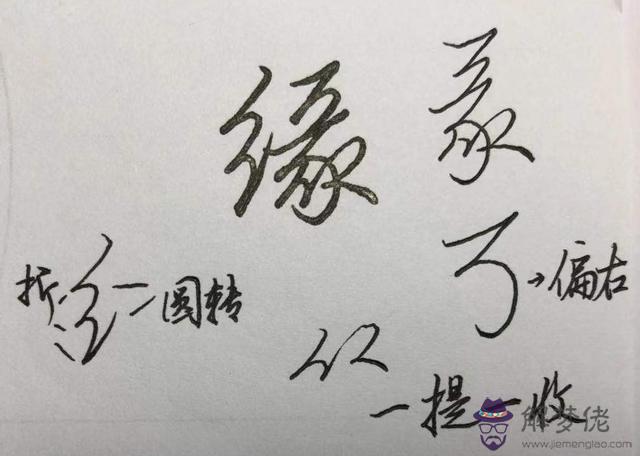 缘 彖
折 圆转 偏右
一提一收
解梦佬
www.jiemenglao.com